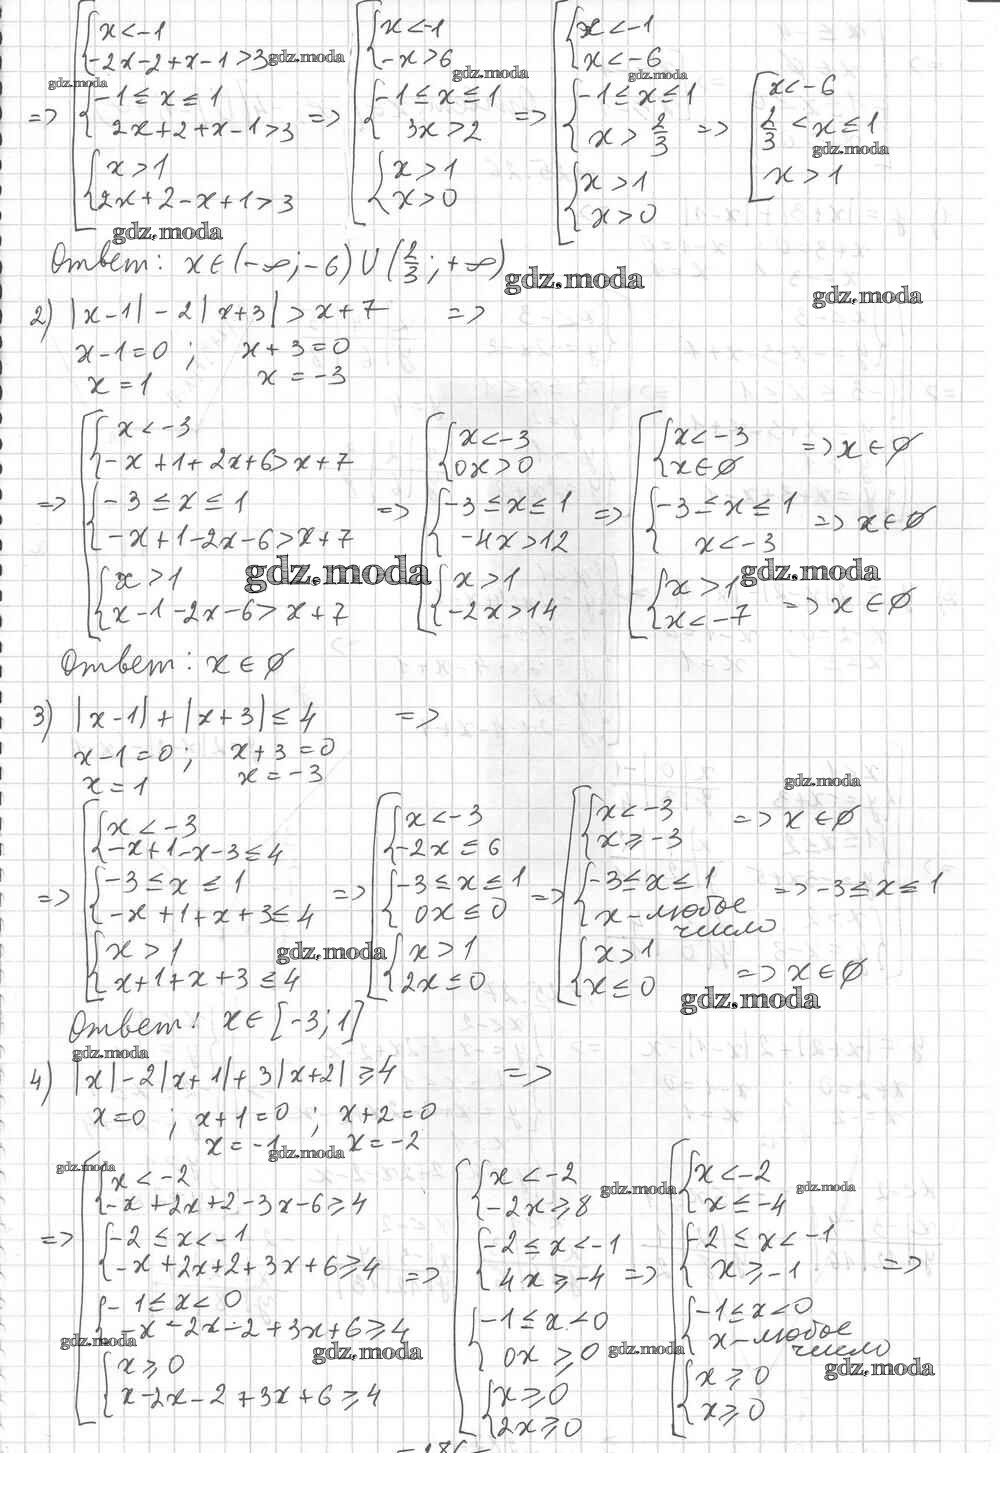 => [ { x < -1 ; -2x-2+x-1 > 3 } { -1 ≤ x ≤ 1 ; 2x+2+x-1 > 3 } { x > 1 ; 2x+2-x+1 > 3 }
=> [ { x < -1 ; -x > 6 } { -1 ≤ x ≤ 1 ; 3x > 2 } { x > 1 ; x > 0 }
=> [ { x < -1 ; x < -6 } { -1 ≤ x ≤ 1 ; x > 2/3 } { x > 1 ; x > 0 }
=> [ x < -6 ; 2/3 < x ≤ 1 ; x > 1
Ответ: x ∈ (-∞; -6) ∪ (2/3; +∞)
2) |x-1| - 2|x+3| > x+7 =>
x-1=0 ; x+3=0
x=1 x=-3
=> [ { x < -3 ; -x+1+2x+6 > x+7 } { -3 ≤ x ≤ 1 ; -x+1-2x-6 > x+7 } { x > 1 ; x-1-2x-6 > x+7 }
=> [ { x < -3 ; 0x > 0 } { -3 ≤ x ≤ 1 ; -4x > 12 } { x > 1 ; -2x > 14 }
=> [ { x < -3 ; x ∈ ∅ } => x ∈ ∅ { -3 ≤ x ≤ 1 ; x < -3 } => x ∈ ∅ { x > 1 ; x < -7 } => x ∈ ∅
Ответ: x ∈ ∅
3) |x-1| + |x+3| ≤ 4 =>
x-1=0 ; x+3=0
x=1 x=-3
=> [ { x < -3 ; -x+1-x-3 ≤ 4 } { -3 ≤ x ≤ 1 ; -x+1+x+3 ≤ 4 } { x > 1 ; x+1+x+3 ≤ 4 }
=> [ { x < -3 ; -2x ≤ 6 } { -3 ≤ x ≤ 1 ; 0x ≤ 0 } { x > 1 ; 2x ≤ 0 }
=> [ { x < -3 ; x ≥ -3 } => x ∈ ∅ { -3 ≤ x ≤ 1 ; x - любое число } => -3 ≤ x ≤ 1 { x > 1 ; x ≤ 0 } => x ∈ ∅
Ответ: x ∈ [-3; 1]
4) |x| - 2|x+1| + 3|x+2| ≥ 4 =>
x=0 ; x+1=0 ; x+2=0
x=-1 x=-2
=> [ { x < -2 ; -x+2x+2-3x-6 ≥ 4 } { -2 ≤ x < -1 ; -x+2x+2+3x+6 ≥ 4 } { -1 ≤ x < 0 ; -x-2x-2+3x+6 ≥ 4 } { x ≥ 0 ; x-2x-2+3x+6 ≥ 4 }
=> [ { x < -2 ; -2x ≥ 8 } { -2 ≤ x < -1 ; 4x ≥ -4 } { -1 ≤ x < 0 ; 0x ≥ 0 } { x ≥ 0 ; 2x ≥ 0 }
=> [ { x < -2 ; x ≤ -4 } { -2 ≤ x < -1 ; x ≥ -1 } { -1 ≤ x < 0 ; x - любое число } { x ≥ 0 ; x ≥ 0 } =>
gdz.moda